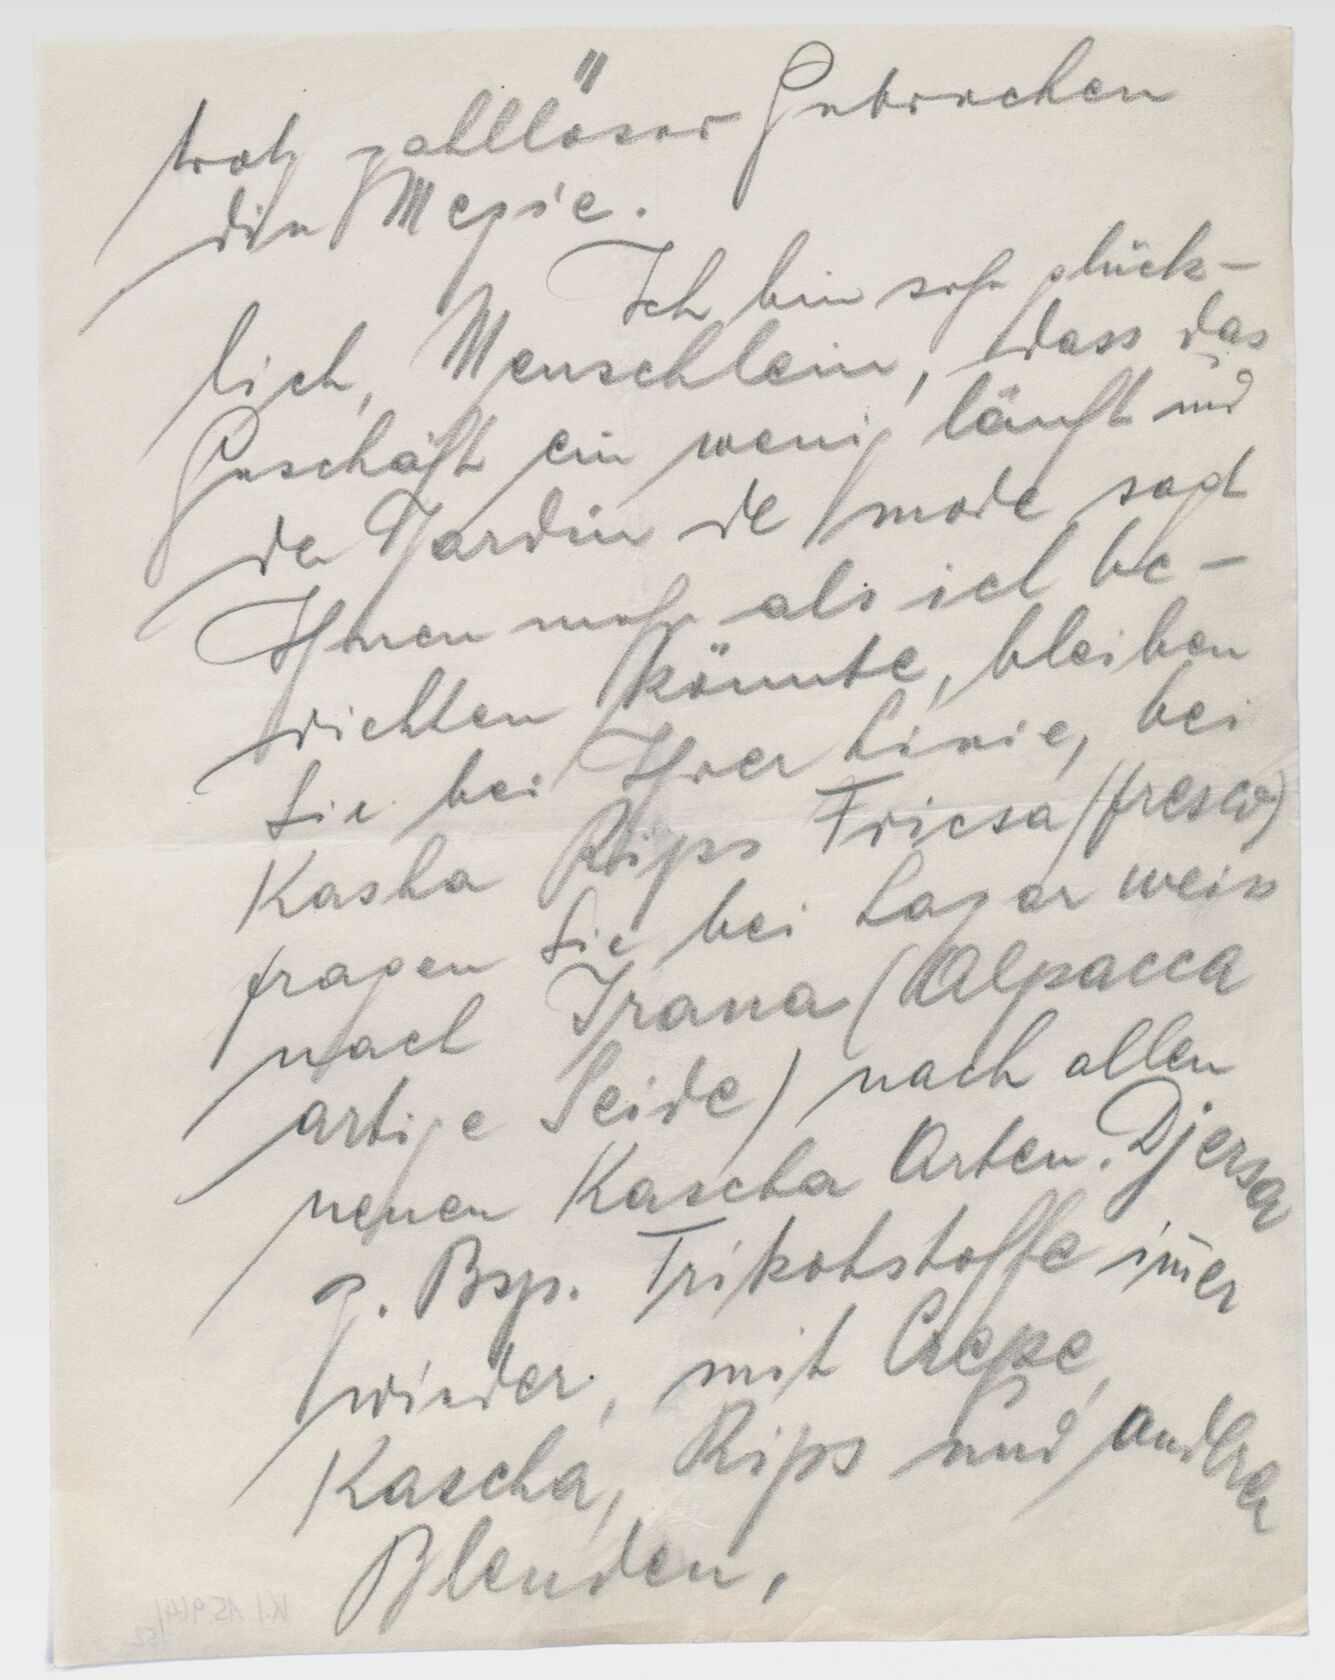 trotz zahlloser Gebrechen
die Megie.
Ich bin sehr glück-
lich, Menschlein, dass das
Geschäft ein wenig läuft und
der Jardin de mode sagt
Ihnen mehr als ich be-
richten könnte, bleiben
Sie bei Ihrer Linie, bei
Kasha Rips Friesa (fresco)
fragen Sie bei Lagar weiss
nach Irana (Alpacca
artige Seide) nach allen
neuen Kascha Arten. Djersa
z. Bsp. Trikotstoffe im̅er
wieder, mit Crepe,
Kascha, Rips und andrer
Blenden,